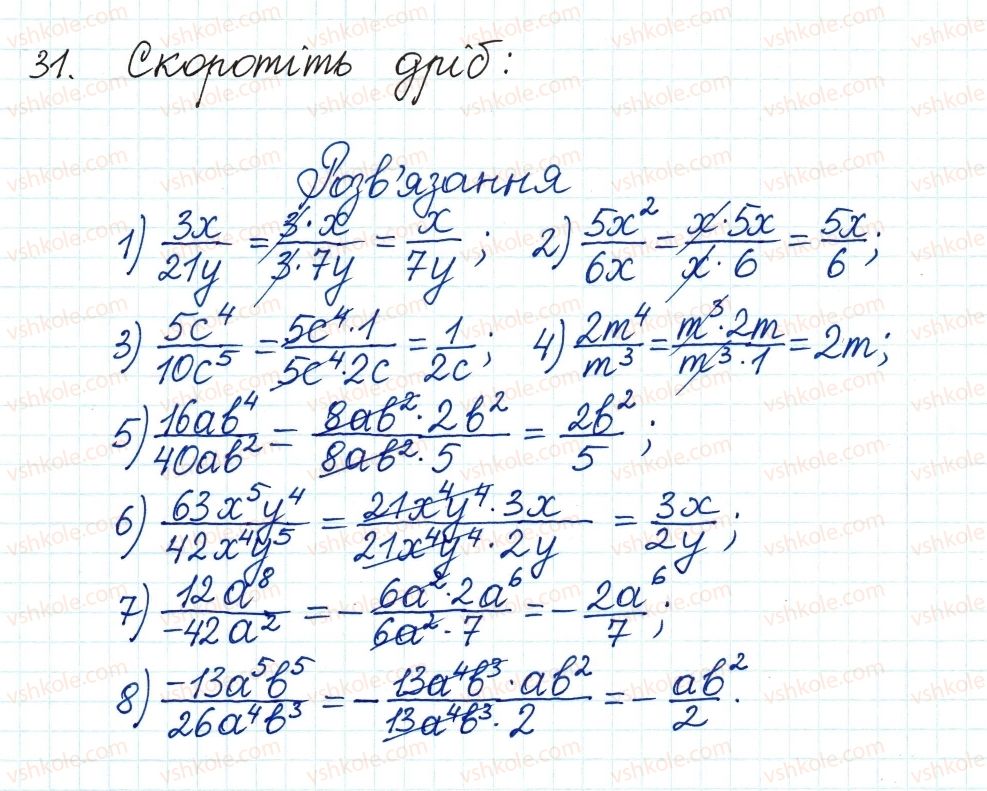 31. Скоротіть дріб:
Розв'язання
1) 3x/21y = 3·x/3·7y = x/7y; 2) 5x²/6x = x·5x/x·6 = 5x/6;
3) 5c⁴/10c⁵ = 5c⁴·1/5c⁴·2c = 1/2c; 4) 2m⁴/m³ = m³·2m/m³·1 = 2m;
5) 16ab⁴/40ab² = 8ab²·2b²/8ab²·5 = 2b²/5;
6) 63x⁵y⁴/42x⁴y⁵ = 21x⁴y⁴·3x/21x⁴y⁴·2y = 3x/2y;
7) 12a⁸/-42a² = -6a²·2a⁶/6a²·7 = -2a⁶/7;
8) -13a⁵b⁵/26a⁴b³ = -13a⁴b³·ab²/13a⁴b³·2 = -ab²/2.